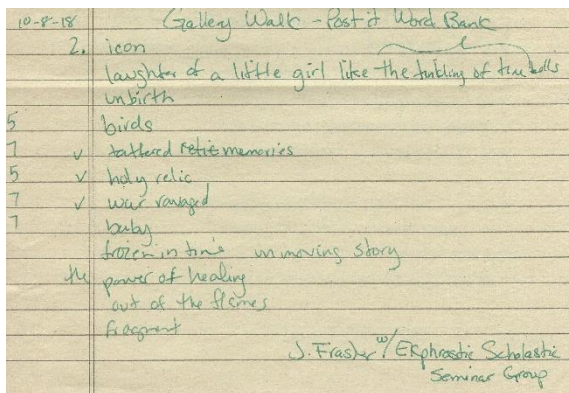 10-8-18 Gallery Walk - Post it Word Bank
2. icon
laughter of a little girl like the tinkling of tiny bells
unbirth
5 birds
7 ✓ tattered relic memories
5 ✓ holy relic
7 ✓ war ravaged
7 baby
frozen in time unmoving story
the power of healing
out of the flames
fragment
J. Frasier w/ Ekphrastic Scholastic
Seminar Group